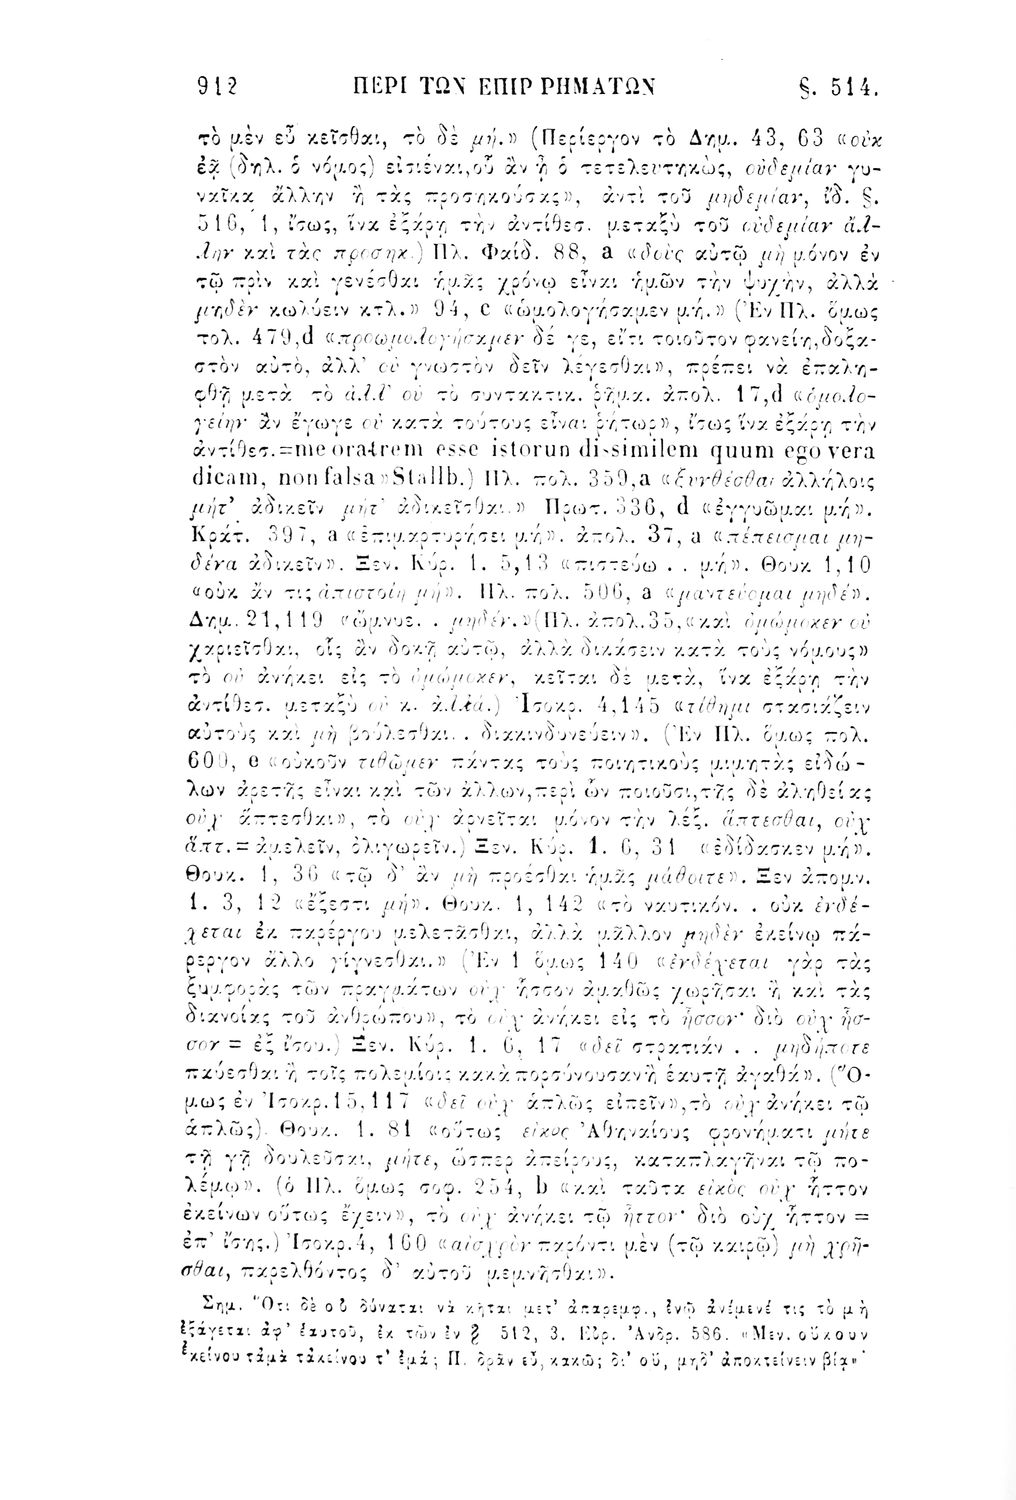 912 ΠΕΡΙ ΤΩΝ ΕΠΙΡΡΗΜΑΤΩΝ §. 514.
τὸ μὲν εὖ κεῖσθαι, τὸ δὲ μή.» (Περίεργον τὸ Δημ. 43, 63 «οὐκ
ἐᾷ (δηλ. ὁ νόμος) εἰσιέναι,οὗ ἂν ᾖ ὁ τετελευτηκώς, οὐδεμίαν γυ-
ναῖκα ἄλλην ἢ τὰς προσηκούσας», ἀντὶ τοῦ μηδεμίαν, ἴδ. §.
516, 1, ἴσως, ἵνα ἐξάρῃ τὴν ἀντίθεσ. μεταξὺ τοῦ οὐδεμίαν ἄλ-
λην καὶ τὰς προσηκ.) Πλ. Φαίδ. 88, a «δοὺς αὐτῷ μὴ μόνον ἐν
τῷ πρὶν καὶ γενέσθαι ἡμᾶς χρόνῳ εἶναι ἡμῶν τὴν ψυχήν, ἀλλὰ
μηδὲν κωλύειν κτλ.» 94, c «ὡμολογήσαμεν μή.» (Ἐν Πλ. ὅμως
πολ. 479,d «προωμολογήσαμεν δέ γε, εἴτι τοιοῦτον φανείη,δοξα-
στὸν αὐτό, ἀλλ' οὐ γνωστὸν δεῖν λέγεσθαι», πρέπει νὰ ἐπαλη-
φθῇ μετὰ τὸ ἀλλ' οὐ τὸ συντακτικ. ῥῆμα. ἀπολ. 17,d «ὁμολο-
γείην ἂν ἔγωγε οὐ κατὰ τούτους εἶναι ῥήτωρ», ἴσως ἵνα ἐξάρῃ τὴν
ἀντίθεσ.=me oratrem esse istorun dissimilem quum ego vera
dicam, non falsa»Stallb.) Πλ. πολ. 359,a «ξυνθέσθαι ἀλλήλοις
μήτ' ἀδικεῖν μήτ' ἀδικεῖσθαι.» Πρωτ. 336, d «ἐγγυῶμαι μή».
Κράτ. 397, a «ἐπιμαρτυρήσει μή». ἀπολ. 37, a «πέπεισμαι μη-
δένα ἀδικεῖν». Ξεν. Κύρ. 1. 5,13 «πιστεύω . . μή». Θουκ 1,10
«οὐκ ἄν τις ἀπιστοίη μή». Πλ. πολ. 506, a «μαντεύομαι μηδέ».
Δημ. 21,119 «ὤμνυε. . μηδέν.»(Πλ. ἀπολ.35,«καὶ ὀμώμοκεν οὐ
χαριεῖσθαι, οἷς ἂν δοκῇ αὐτῷ, ἀλλὰ δικάσειν κατὰ τοὺς νόμους»
τὸ οὐ ἀνήκει εἰς τὸ ὀμώμοκεν, κεῖται δὲ μετά, ἵνα ἐξάρῃ τὴν
ἀντίθεσ. μεταξὺ οὐ κ. ἀλλά.) Ἰσοκρ. 4,145 «τίθημι στασιάζειν
αὐτοὺς καὶ μὴ βούλεσθαι. . διακινδυνεύειν». (Ἐν Πλ. ὅμως πολ.
600, e «οὐκοῦν τιθῶμεν πάντας τοὺς ποιητικοὺς μιμητὰς εἰδώ-
λων ἀρετῆς εἶναι καὶ τῶν ἄλλων,περὶ ὧν ποιοῦσι,τῆς δὲ ἀληθείας
οὐχ ἅπτεσθαι», τὸ οὐχ ἀρνεῖται μόνον τὴν λέξ. ἅπτεσθαι, οὐχ
ἅπτ.= ἀμελεῖν, ὀλιγωρεῖν.) Ξεν. Κύρ. 1. 6, 31 «ἐδίδασκεν μή».
Θουκ. 1, 36 «τῷ δ' ἂν μὴ προέσθαι ἡμᾶς μάθοιτε». Ξεν ἀπομν.
1. 3, 12 «ἔξεστι μή». Θουκ. 1, 142 «τὸ ναυτικόν. . οὐκ ἐνδέ-
χεται ἐκ παρέργου μελετᾶσθαι, ἀλλὰ μᾶλλον μηδὲν ἐκείνῳ πά-
ρεργον ἄλλο γίγνεσθαι.» (Ἐν 1 ὅμως 140 «ἐνδέχεται γὰρ τὰς
ξυμφορὰς τῶν πραγμάτων οὐχ ἧσσον ἀμαθῶς χωρῆσαι ἢ καὶ τὰς
διανοίας τοῦ ἀνθρώπου», τὸ οὐχ ἀνήκει εἰς τὸ ἧσσον· διὸ οὐχ ἧσ-
σον = ἐξ ἴσου.) Ξεν. Κύρ. 1. 6, 17 «δεῖ στρατιάν . . μηδήποτε
παύεσθαι ἢ τοῖς πολεμίοις κακὰ πορσύνουσαν ἢ ἑαυτῇ ἀγαθά». (Ὅ-
μως ἐν Ἰσοκρ.15,117 «δεῖ οὐχ ἁπλῶς εἰπεῖν»,τὸ οὐχ ἀνήκει τῷ
ἁπλῶς). Θουκ. 1. 81 «οὕτως εἰκὸς Ἀθηναίους φρονήματι μήτε
τῇ γῇ δουλεῦσαι, μήτε, ὥσπερ ἀπείρους, καταπλαγῆναι τῷ πο-
λέμῳ». (ὁ Πλ. ὅμως σοφ. 254, b «καὶ ταῦτα εἰκὸς οὐχ ἧττον
ἐκείνων οὕτως ἔχειν», τὸ οὐχ ἀνήκει τῷ ἧττον· διὸ οὐχ ἧττον =
ἐπ' ἴσης.) Ἰσοκρ.4, 160 «αἰσχρὸν παρόντι μὲν (τῷ καιρῷ) μὴ χρῆ-
σθαι, παρελθόντος δ' αὐτοῦ μεμνῆσθαι».
Σημ. Ὅτι δὲ οὐ δύναται νὰ κῆται μετ' ἀπαρεμφ., ἐνῷ ἀνέμενέ τις τὸ μὴ
ἐξάγεται ἀφ' ἑαυτοῦ, ἐκ τῶν ἐν § 512, 3. Εὐρ. Ἀνδρ. 586. «Μεν. οὔκουν
ἐκείνου τἀμὰ τἀκείνου τ' ἐμά; Π. δρᾶν εὖ, κακῶς δ' οὔ, μηδ' ἀποκτείνειν βίᾳ»·